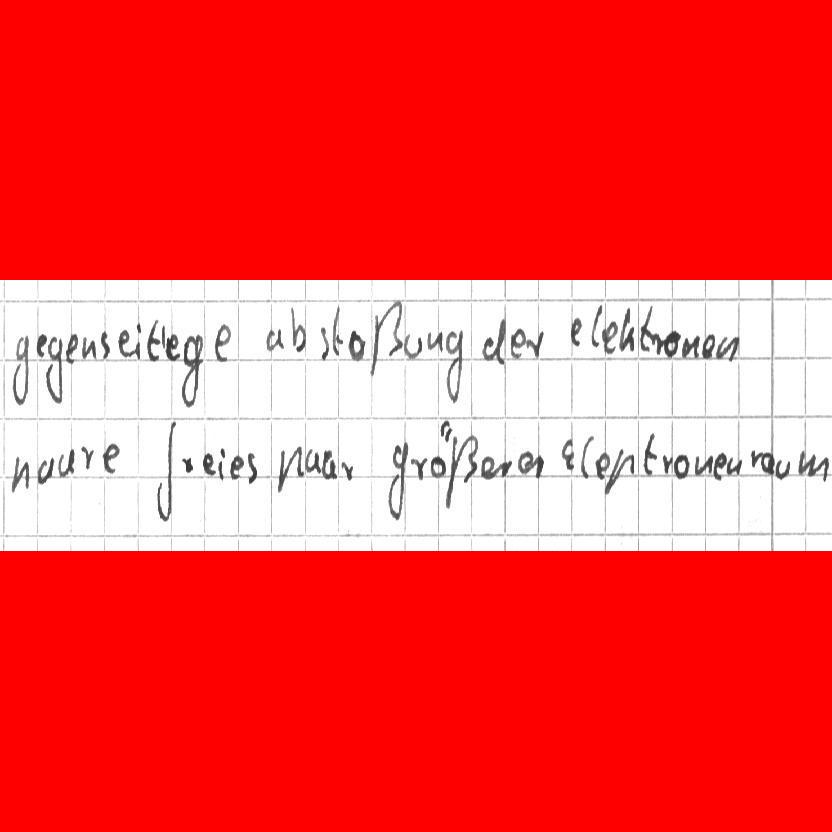 gegenseitiege abstoßung der elektronen
paare freies paar größerer Eleptronenraum